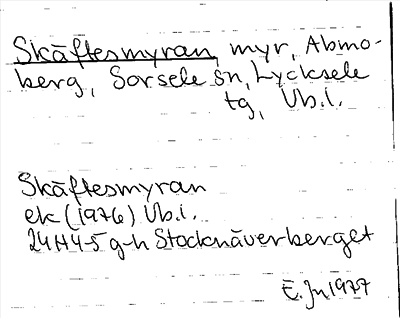 Skäftesmyran, myr, Abmo-
berg, Sorsele sn, Lycksele
tg, Vb.l.
Skäftesmyran
ek (1976) Vb.l.
24H4-5 g-h Stocknäverberget
E. Jn 1977